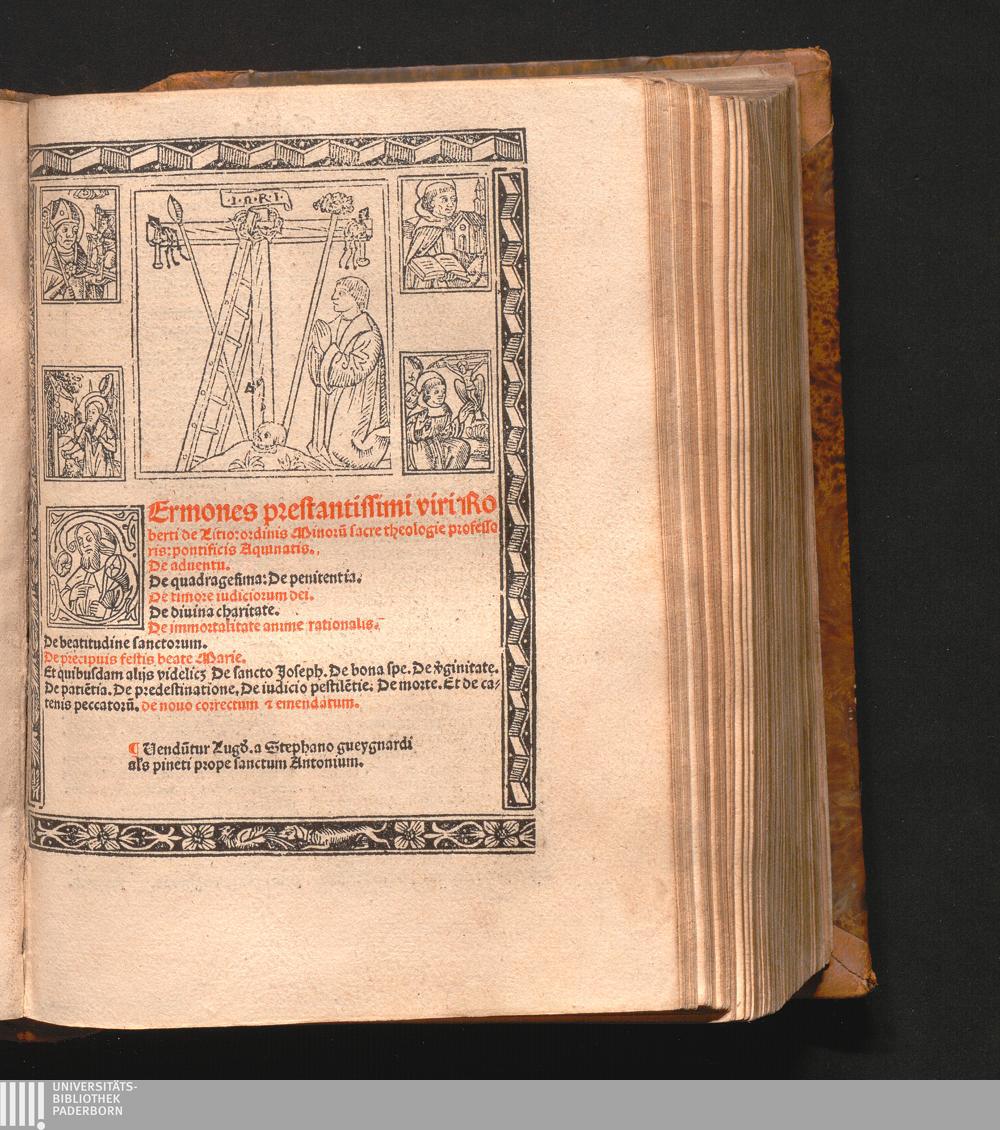 ·I·n·R·I·
Ermones prestantissimi viri Ro
berti de Litio: ordinis Minorū sacre theologie professo
ris: pontificis Aquinatis.,
De aduentu.
De quadragesima: De penitentia.
De timore iudiciorum dei.
De diuina charitate.
De immortalitate anime rationalis.
De beatitudine sanctorum.
De precipuis festis beate Marie.
Et quibusdam alijs videlicꝫ De sancto Joseph. De bona spe. De v̄ginitate.
De patiētia. De predestinatione. De iudicio pestilētie: De morte. Et de ca-
tenis peccatorū. de nouo correctum ⁊ emendatum.
¶ Uendūtur Lugd̄. a Stephano gueygnardi
al's pineti prope sanctum Antonium.
UNIVERSITÄTS-
BIBLIOTHEK
PADERBORN